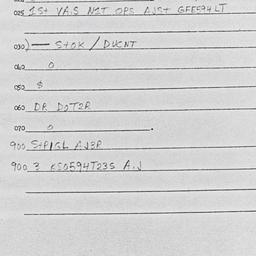 025 1St VAS NIT OPS AJSt GFE594LT
030) — StOK / DUCNT
040 0
050 $
060 DR DOT2R
070 0
900 StPIGL AJ3R
900 3 KS0594T23S A.J